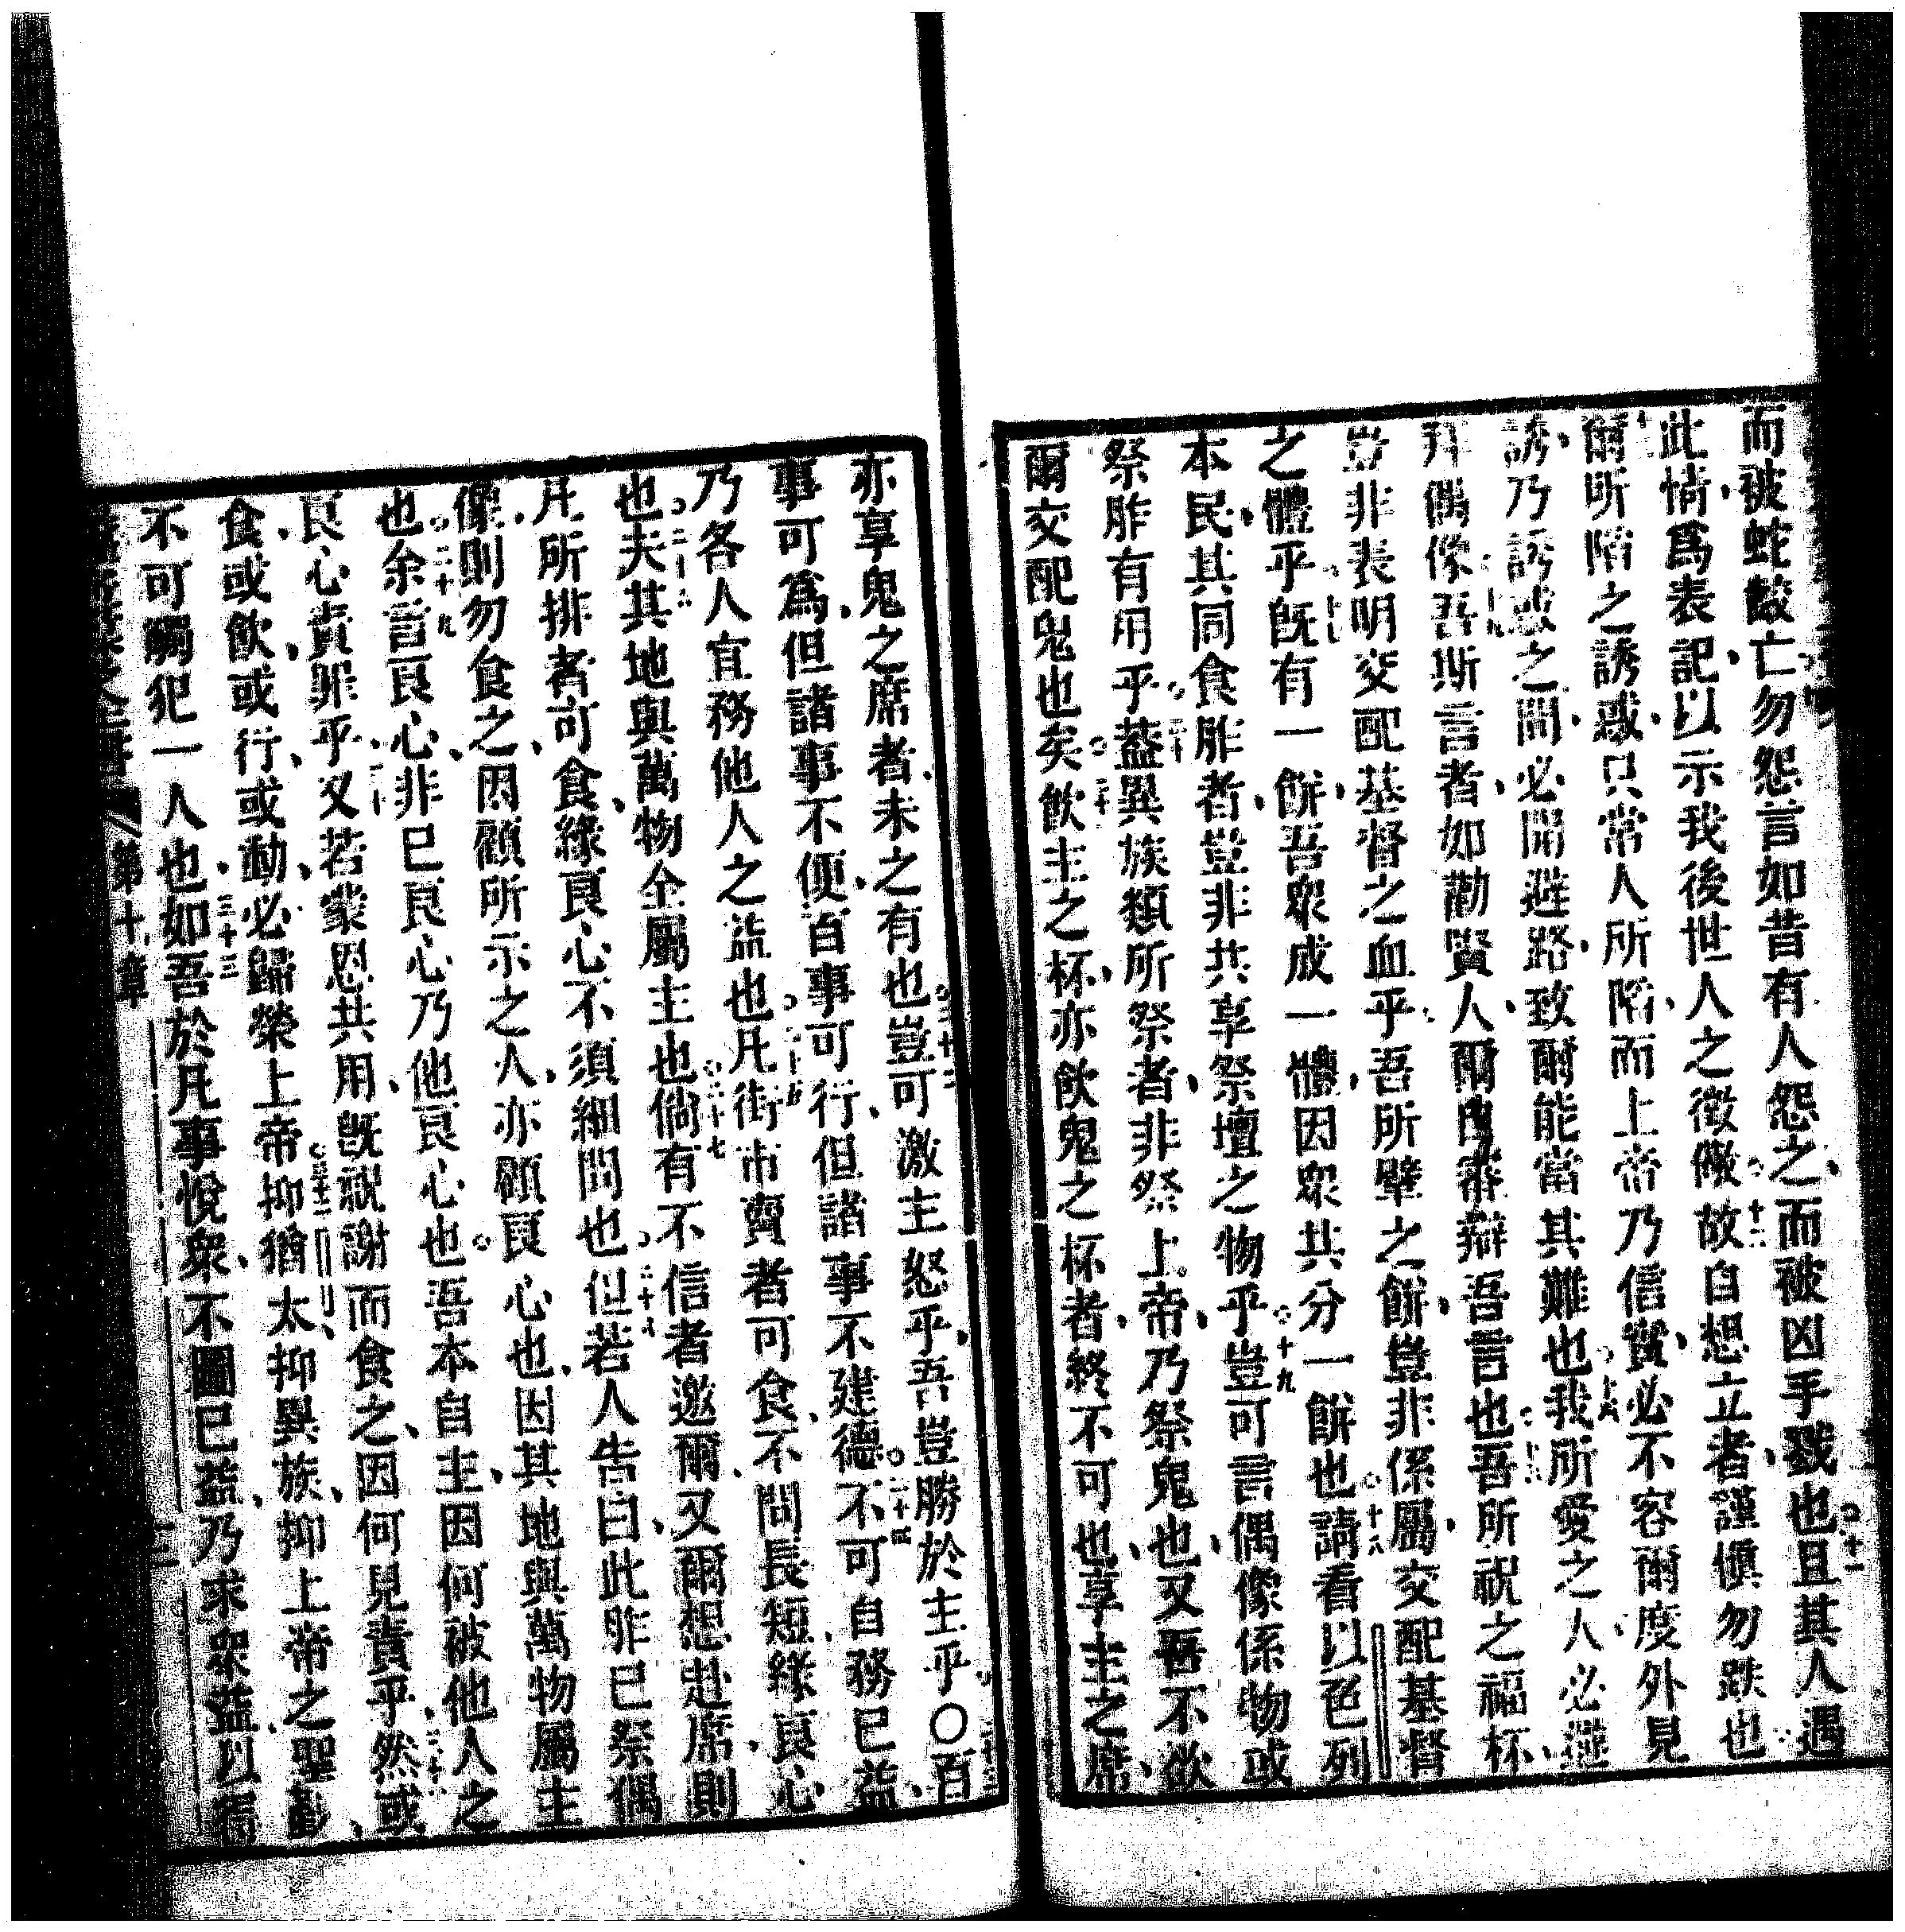 而被蛇齩亡勿怨言如昔有人怨之而被凶手戮也十一且其人遇
此情爲表記以示我後世人之徵儆十二故自想立者謹愼勿跌也
爾所陷之誘惑只常人所陷而上帝乃信實必不容爾度外見
誘乃誘惑之間必開避路致爾能當其難也十四我所愛之人必避
拜偶像十五吾斯言者如勸賢人爾自審辯吾言也十六吾所祝之福杯
豈非表明交配基督之血乎吾所擘之餅豈非係屬交配基督
之體乎十七旣有一餅吾眾成一體因眾共分一餅也十八請看以色列
本民其同食胙者豈非共享祭壇之物乎十九豈可言偶像係物或
祭胙有用乎二十葢異族類所祭者非祭上帝乃祭鬼也又吾不欲
爾交配鬼也矣二十一飲主之杯亦飲鬼之杯者終不可也享主之席
亦享鬼之席者未之有也二十二豈可激主怒乎吾豈勝於主乎〇二十三百
事可爲但諸事不便百事可行但諸事不建德二十四不可自務已益
乃各人宜務他人之益也二十五凡街市賣者可食不問長短緣良心
也二十六夫其地與萬物全屬主也二十七倘有不信者邀爾又爾想赴席則
凡所排者可食緣良心不須細問也二十八但若人告曰此胙已祭偶
像則勿食之因顧所示之人亦顧良心也因其地與萬物屬主
也二十九余言良心非已良心乃他良心也吾本自主因何被他人之
良心責罪乎三十又若蒙恩共用旣祝謝而食之因何見責乎三十一然或
食或飲或行或動必歸榮上帝三十二抑猶太抑異族抑上帝之聖會
不可觸犯一人也三十三如吾於凡事悅眾不圖已益乃求眾益以獲
第十章